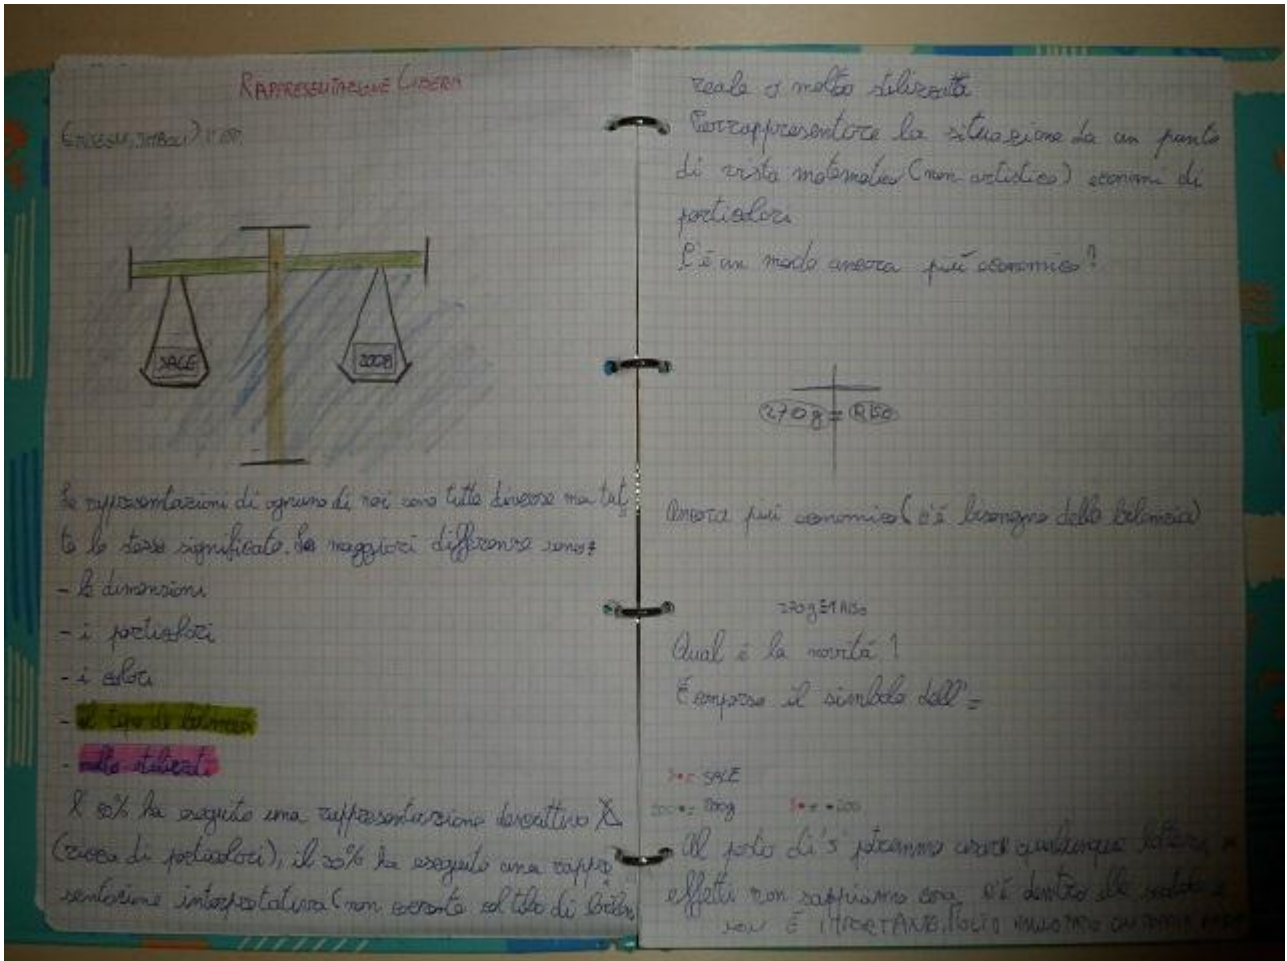 RAPPRESENTAZIONE LIBERA
SALE
200g
Le rappresentazioni di ognuno di noi sono tutte diverse ma tut
te lo stesso significato. Le maggiori differenze sono:
- le dimensioni
- i particolari
- i colori
- il tipo di bilancia
- molto stilizzati
L' 80% ha eseguito una rappresentazione descrittiva
(ricca di particolari), il 20% ha eseguito una rappre
sentazione interpretativa (non coerente col tipo di bilan
reale o molto stilizzata
Per rappresentare la situazione da un punto
di vista matematico (non artistico) economi di
particolari
C'è un modo ancora più economico?
270g = RISO
Ancora più economico (c'è bisogno della bilancia)
270g È 1 RISO
Qual è la novità?
È comparso il simbolo dell' =
S•= SALE
200•= 200g S•= •200
Al posto di 's' potremmo usare qualunque lettera in
effetti non sappiamo cosa c'è dentro alla scatola e
NON È IMPORTANTE,